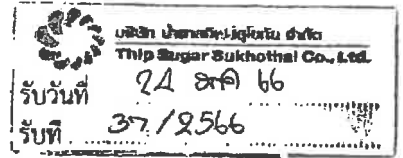 บริษัท น้ำตาลทิพย์สุโขทัย จำกัด
Thip Sugar Sukhothai Co., Ltd.
รับวันที่ 24 66
รับที่ 37/2566